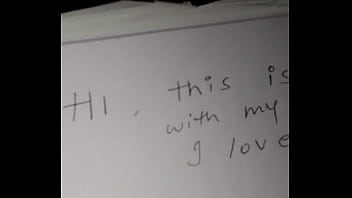 HI, this is
with my
I love